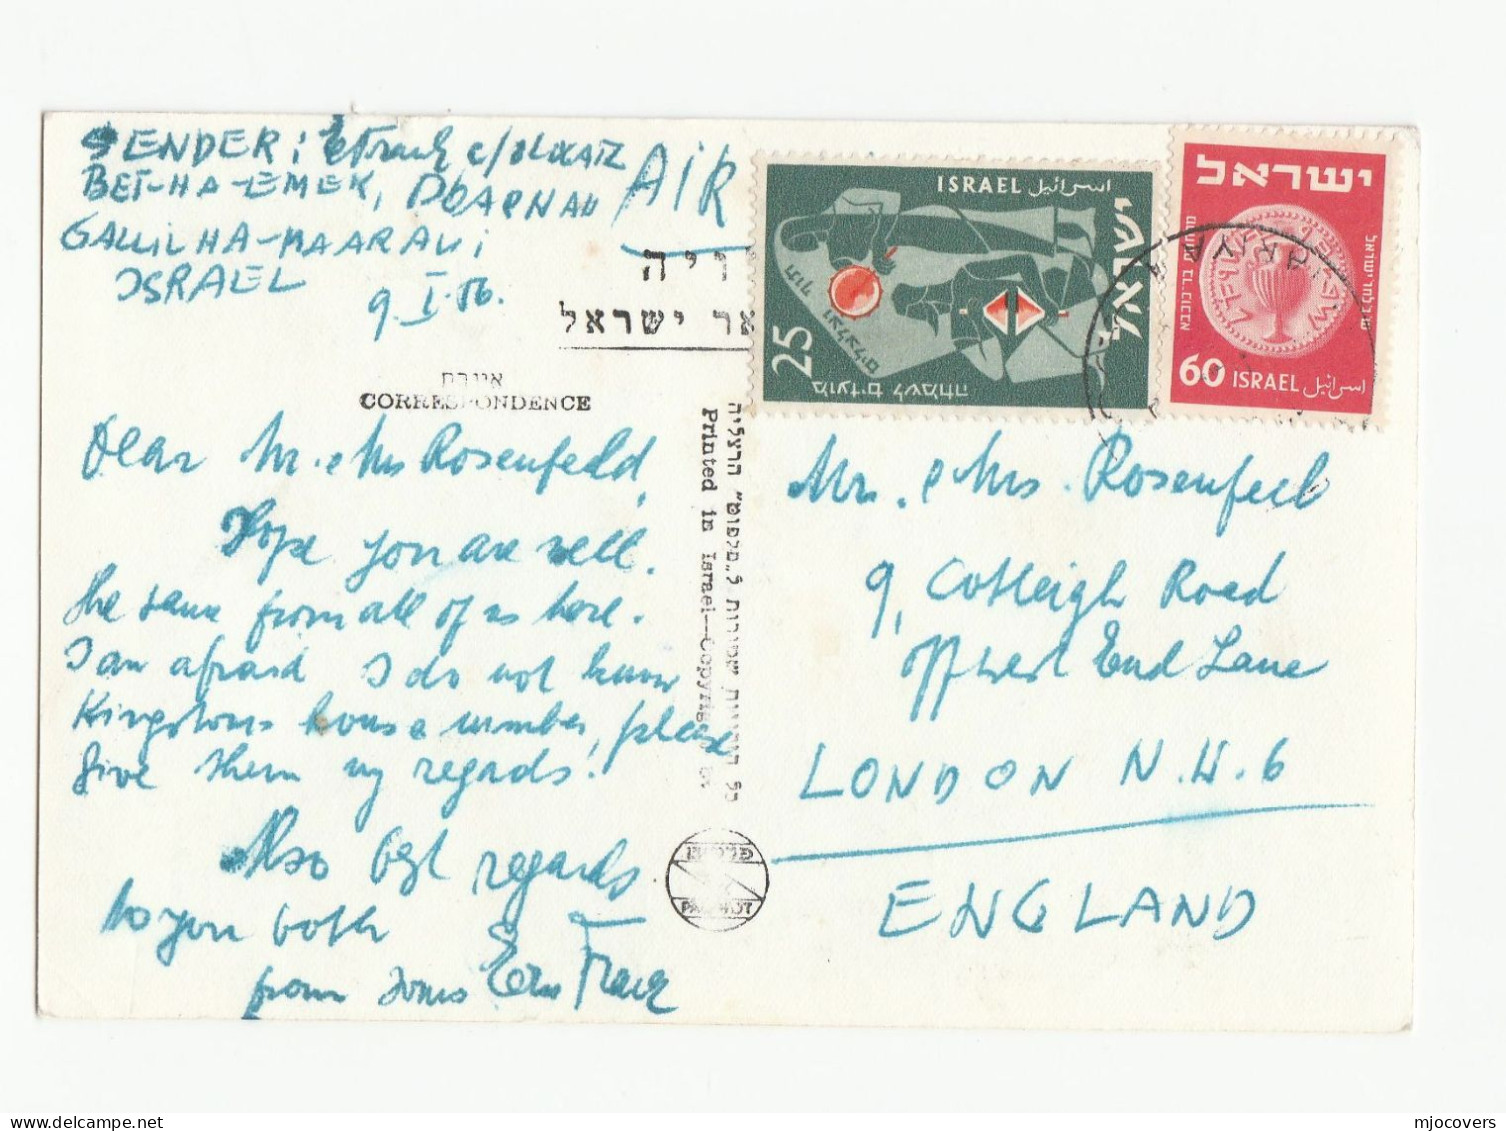 SENDER:
BET-HA-EMEK, DOARNAU
GALLIL HA-MAARAVI
ISRAEL
9.I.56.
AIR
ריה
אר ישראל
CORRESPONDENCE
Dear Mr. & Mrs Rosenfeld,
Hope you are well.
The same from all of us here.
I am afraid I do not know
Kingstons house number, please
give them my regards.
Also best regards
to you both
from yours
Printed in Israel—Copyrig
PALPHOT
ISRAEL اسرائيل
ישראל
25
מועדים לשמחה
ישראל
60 ISRAEL اسرائيل
Mr. & Mrs. Rosenfeld
9, Cotleigh Road
off West End Lane
LONDON N.W.6
ENGLAND
mjocovers